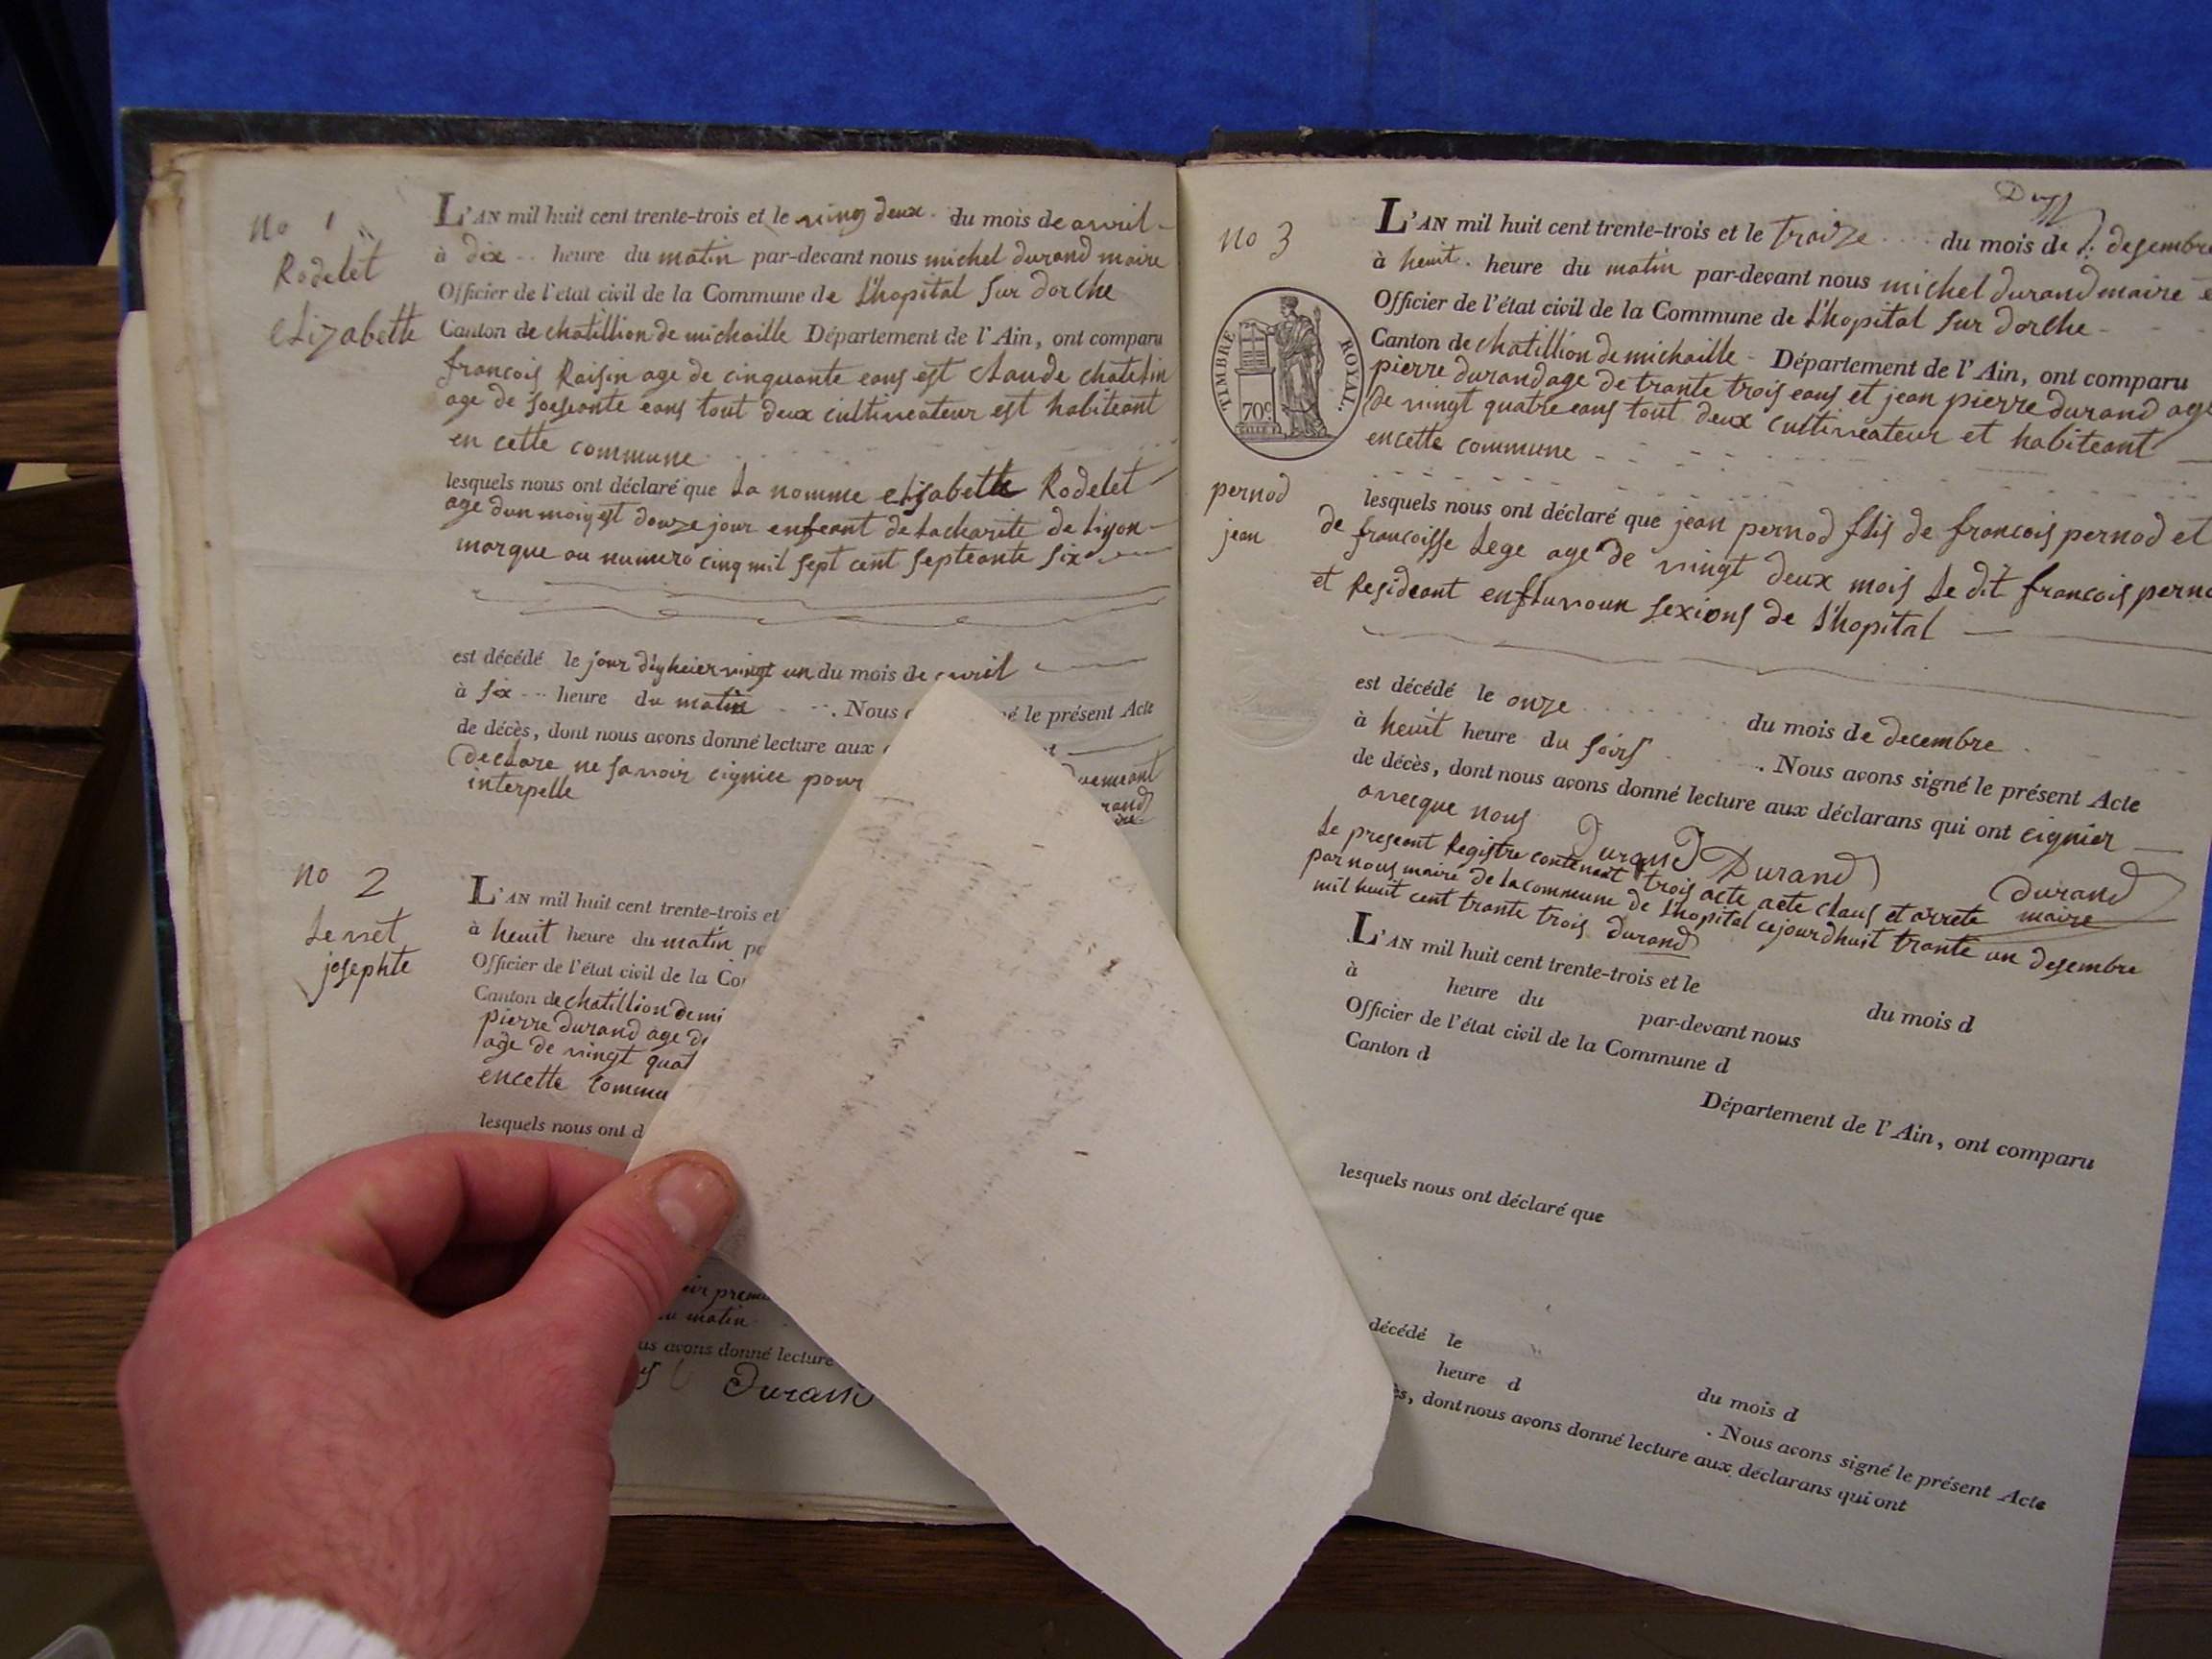 no 1
Rodelet
elizabette
L'AN mil huit cent trente-trois et le ving deux du mois de avril
à dix heure du matin par-devant nous michel durand maire
Officier de l'etat civil de la Commune de L'hopital sur dorche
Canton de chatillion de michaille Département de l'Ain, ont comparu
francois Raisin age de cinquante eans est claude chatelin
age de soessonte eans tout deux cultiveateur est habiteant
en cette commune
lesquels nous ont déclaré que La nomme elisabette Rodelet
age dun mois est douze jour enfeant de Lacharite de Liyon
marque au numero cinq mil sept cent septeante six
est décédé le jour d'igheier vingt un du mois de avril
à six heure du matin . Nous le présent Acte
de décès, dont nous avons donné lecture aux
declare ne savoir cignier pour
interpelle
no 2
josephte
L'AN mil huit cent trente-trois et
à heuit heure du matin
Officier de l'état civil de la
Canton de chatillion de mi
pierre durand age de
age de vingt quat
encette commu
lesquels nous ont d
matin
avons donné lecture
Durand
no 3
TIMBRE ROYAL.
70c
pernod
jean
L'AN mil huit cent trente-trois et le Traize du mois de desembre
à heuit heure du matin par-devant nous michel durand maire
Officier de l'état civil de la Commune de L'hopital sur dorche
Canton de chatillion de michaille Département de l'Ain, ont comparu
pierre durand age de trante trois eans et jean pierre durand age
de vingt quatre eans tout deux cultiveateur et habiteant
encette commune
lesquels nous ont déclaré que jean pernod filis de francois pernod et
de francoisse Lege age de vingt deux mois Le dit francois perno
et Resideant sexions de L'hopital
est décédé le onze du mois de decembre
à heuit heure du soirs . Nous avons signé le présent Acte
de décès, dont nous avons donné lecture aux déclarans qui ont cignier
avecque nous Durand Durand durand
maire
Le preseant Registre contenant trois acte acte claus et arrete
par nous maire de La commune de L'hopital cejourdhuit trante un desembre
mil heuit cent trante trois durand
L'AN mil huit cent trente-trois et le du mois d
à heure du par-devant nous
Officier de l'état civil de la Commune d
Canton d Département de l'Ain, ont comparu
lesquels nous ont déclaré que
décédé le du mois d
heure d . Nous avons signé le présent Acte
dont nous avons donné lecture aux déclarans qui ont